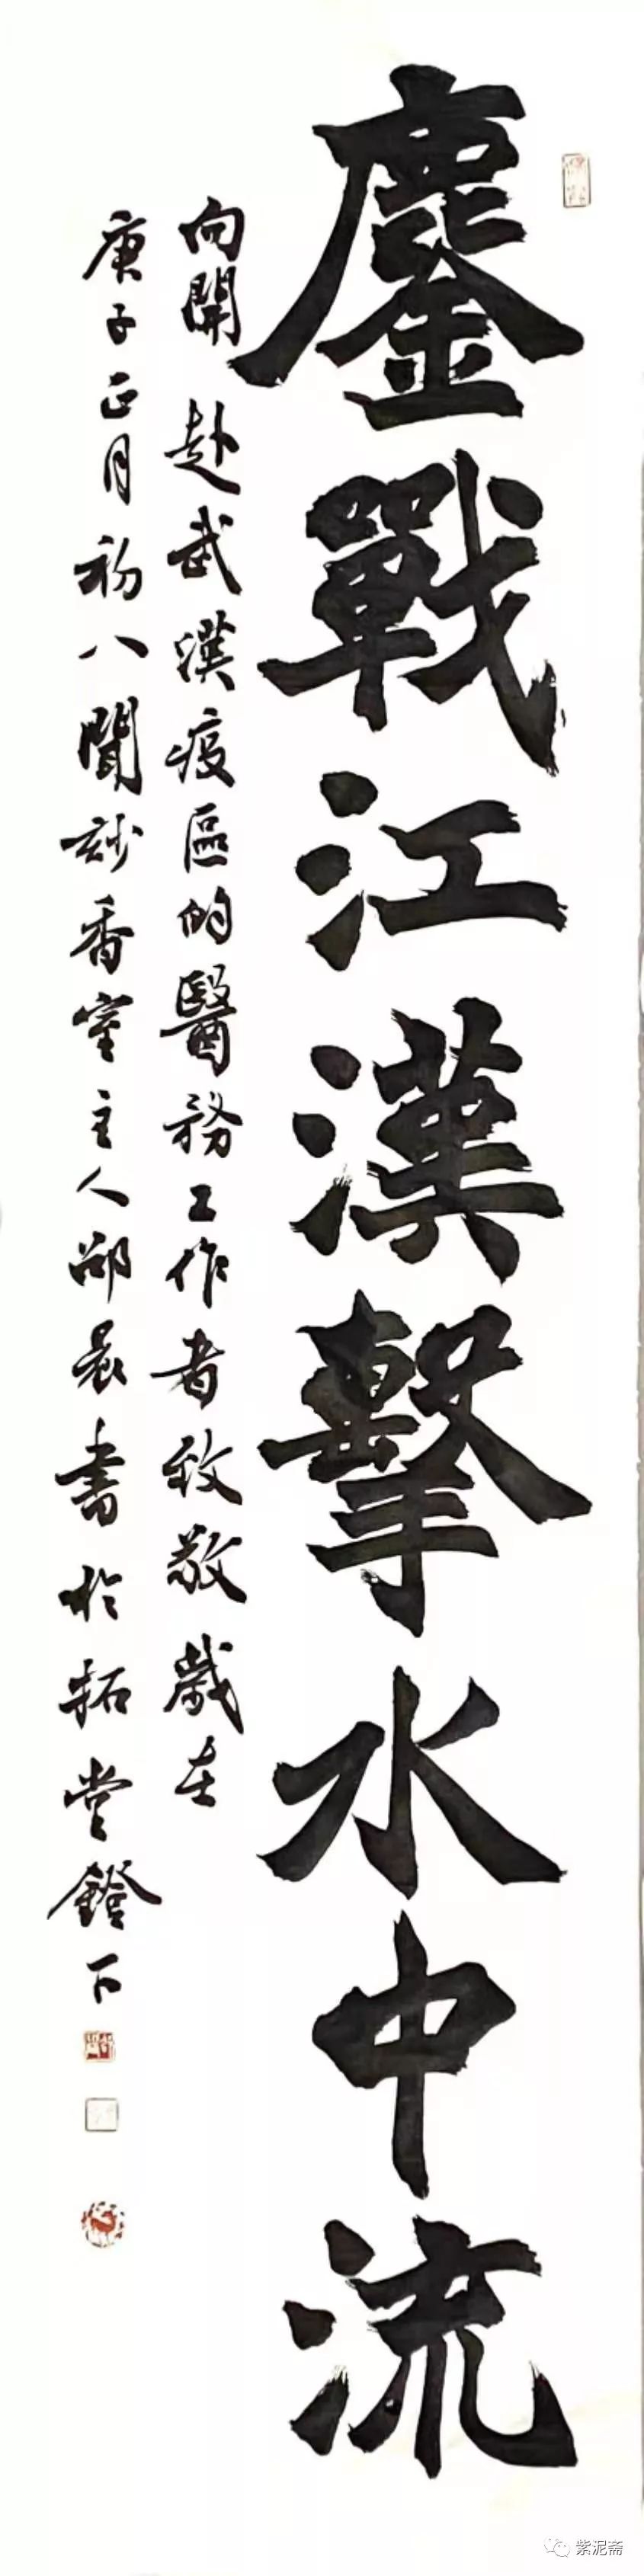 鏖戰江漢擊水中流
向開赴武漢疫區的醫務工作者致敬歲在
庚子正月初八聞妙香室主人邵晨書於拓堂鐙下
紫泥斋